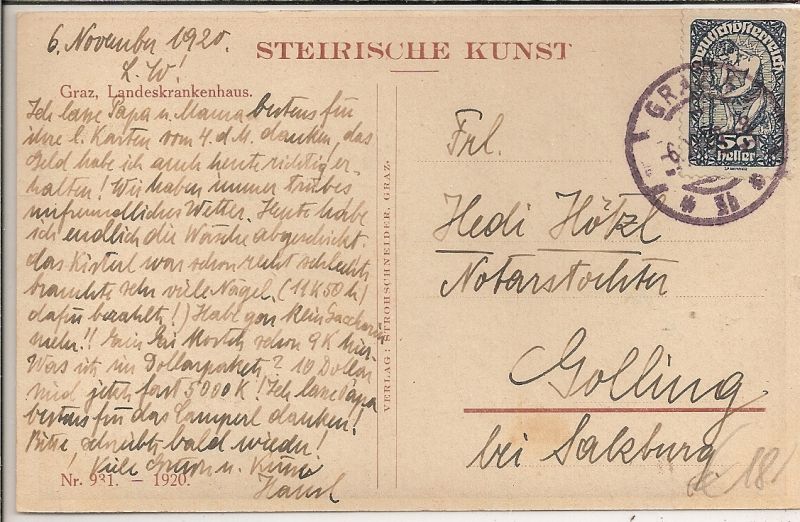 6. November 1920.
STEIRISCHE KUNST
L. W!
Graz, Landeskrankenhaus.
Ich lasse Papa u. Mama bestens für
ihre l. Karten vom 4. d. M. danken, das
Geld habe ich auch heute richtig er-
halten! Wir haben immer trübes
unfreundliches Wetter. Heute habe
ich endlich die Wäsche abgeschickt.
das Kisterl war schon recht schlecht
brauchte sehr viele Nägel. (11 K 50 h)
dafür bezahlt!) Habe gar kein Saccharin
mehr!! Ein Ei kostet schon 9 K hier.
Was ist im Dollarpaket? 10 Dollar
sind jetzt fast 5000 K! Ich lasse Papa
bestens für das danken!
Bitte schreibt bald wieder!
Viele Grüße u. Küsse
Hansl
Nr. 931. — 1920.
VERLAG: STROHSCHNEIDER, GRAZ.
Deutschösterreich
50
heller
GRAZ
Frl.
Hedi Hötzl
Notarstochter
Golling
bei Salzburg